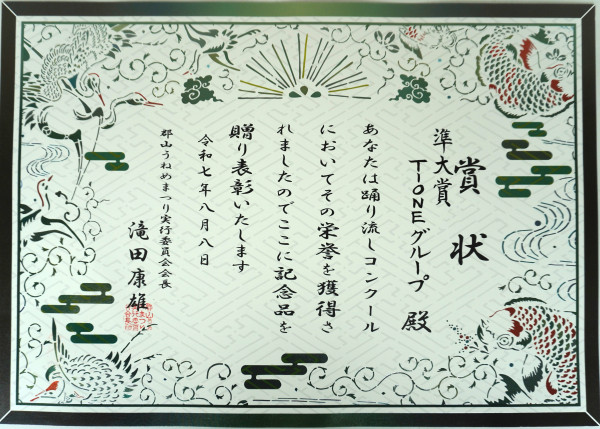 賞状
準大賞
TIONEグループ 殿
あなたは踊り流しコンクール
においてその栄誉を獲得さ
れましたのでここに記念品を
贈り表彰いたします
令和七年八月八日
郡山うねめまつり実行委員会会長
滝田康雄